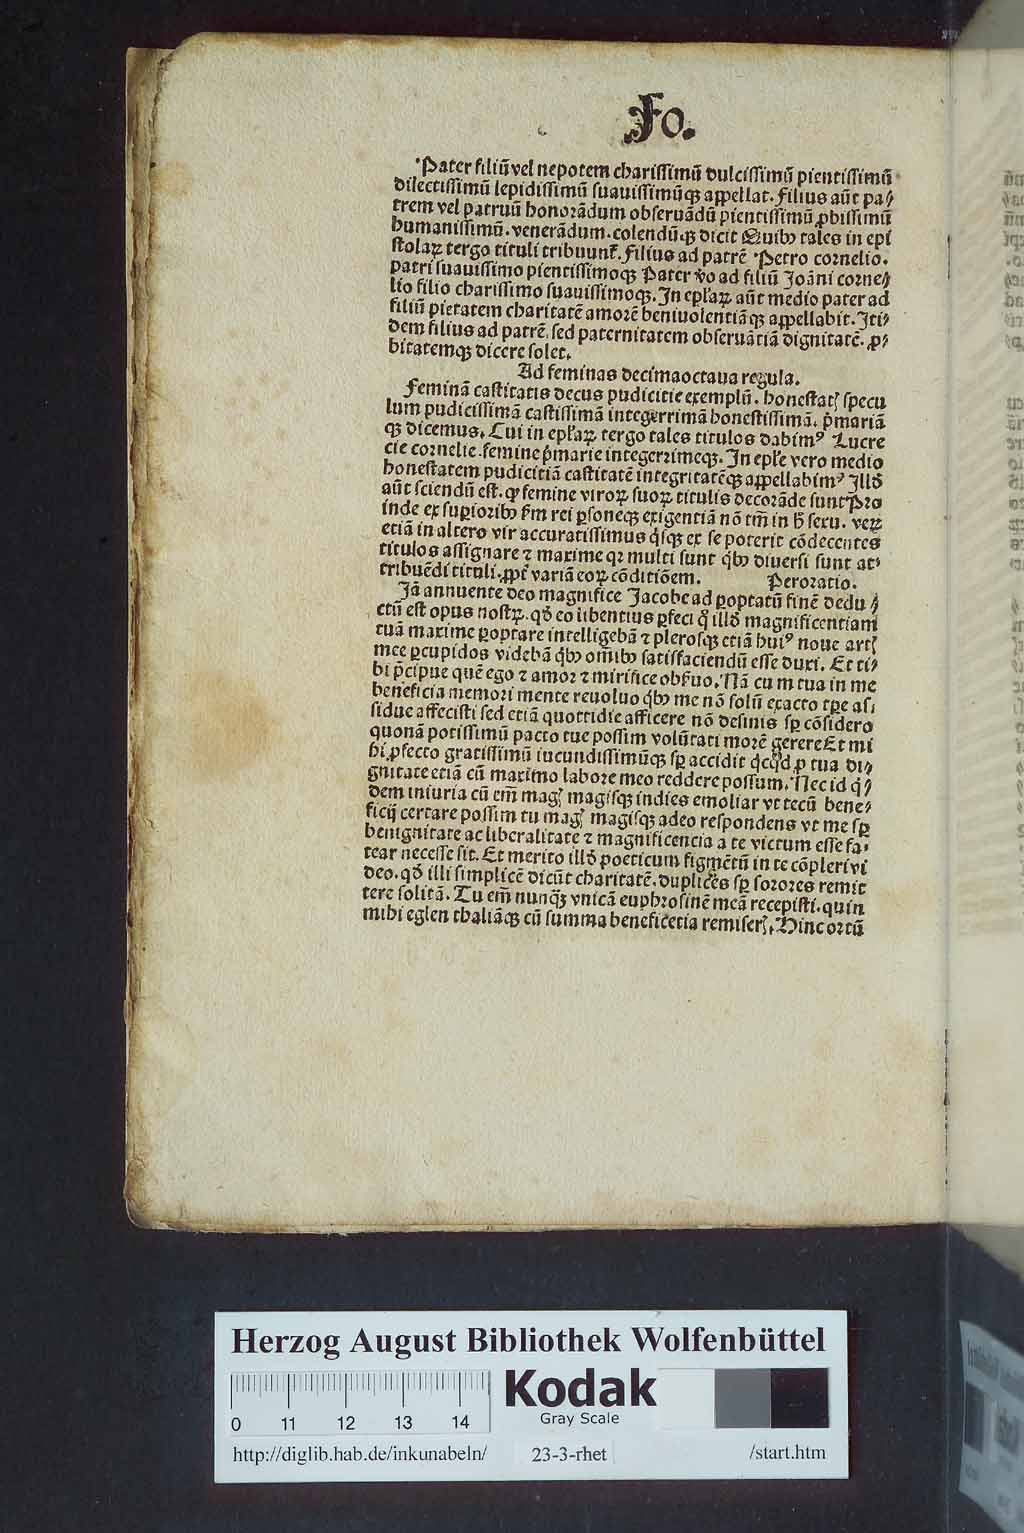 Fo.
Pater filiū vel nepotem charissimū dulcissimū pientissimū
dilectissimū lepidissimū suauissimūqꝫ appellat. Filius aūt pa⸗
trem vel patruū honorādum obseruādū pientissimū ꝓbissimū
humanissimū. venerādum. colendūqꝫ dicit Quibꝰ tales in epi
stolaꝝ tergo tituli tribuunt᷑. Filius ad patrē Petro cornelio.
patri suauissimo pientissimoqꝫ Pater v̊o ad filiū Joāni corne⸗
lio filio charissimo suauissimoqꝫ. In epl̄aꝝ aūt medio pater ad
filiū pietatem charitatē amorē beniuolentiāqꝫ appellabit. Iti⸗
dem filius ad patrē. sed paternitatem obseruātiā dignitatē. ꝓ⸗
bitatemqꝫ dicere solet.
Ad feminas decimaoctaua regula.
Feminā castitatis decus pudicitie exemplū. honestatꝭ specu
lum pudicissimā castissimā integerrimā honestissimā. p̄mariā
qꝫ dicemus. Cui in epl̄aꝝ tergo tales titulos dabimꝰ Lucre
cie cornelie. femine p̄marie integerrimeqꝫ. In epl̄e vero medio
honestatem pudicitiā castitatē integritatēqꝫ appellabimꝰ Illď
aūt sciendū est. ꝙ femine viroꝝ suoꝝ titulis decorāde sunt Pro
inde ex suꝑioribꝰ ẜm rei ꝑsoneqꝫ exigentiā nō tm̄ in ħ sexu. veꝝ
etiā in altero vir accuratissimus q̇sqꝫ ex se poterit cōdecentes
titulos assignare ⁊ maxime qꝛ multi sunt q̇bꝰ diuersi sunt at⸗
tribuēdi tituli. ꝓpt̄ variā eoꝝ cōditiōem. Peroratio.
Jā annuente deo magnifice Jacobe ad ꝑoptatū finē dedu⸗
ctū est opus nostꝝ. qď eo libentius ꝑfeci q̊ illď magnificentiam
tuā maxime ꝑoptare intelligebā ⁊ plerosqꝫ etiā huiꝰ noue artꝭ
mee ꝑcupidos videbā q̇bꝰ om̄ibꝰ satisfaciendū esse duxi. Et ti⸗
bi p̄cipue quē ego ⁊ amor ⁊ mirifice obẜuo. Nā cum tua in me
beneficia memori mente reuoluo q̇bꝰ me nō solū exacto tꝑe as⸗
sidue affecisti sed etiā quottidie afficere nō desinis sꝑ cōsidero
quonā potissimū pacto tue possim volūtati morē gerere Et mi
hi ꝓfecto gratissimū iucundissimūqꝫ sꝑ accidit q̇cq̇d ꝓ tua di⸗
gnitate etiā cū maximo labore meo reddere possum. Nec id q̇⸗
dem iniuria cū em̄ magꝭ magisqꝫ indies emoliar vt tecū bene⸗
ficij certare possim tu magꝭ magisqꝫ adeo respondens vt me sꝑ
benignitate ac liberalitate ⁊ magnificencia a te victum esse fa⸗
tear necesse sit. Et merito illď poeticum figmētū in te cōpleri vi
deo. qď illi simplicē dicūt charitatē. duplices sꝑ sorores remit
tere solitā. Tu em̄ nunqꝫ vnicā euphrosinē meā recepisti. quin
mihi eglen thaliāqꝫ cū summa beneficetia remiserꝭ. Hinc ortū
Herzog August Bibliothek Wolfenbüttel
0 11 12 13 14
Kodak
Gray Scale
http://diglib.hab.de/inkunabeln/ 23-3-rhet /start.htm